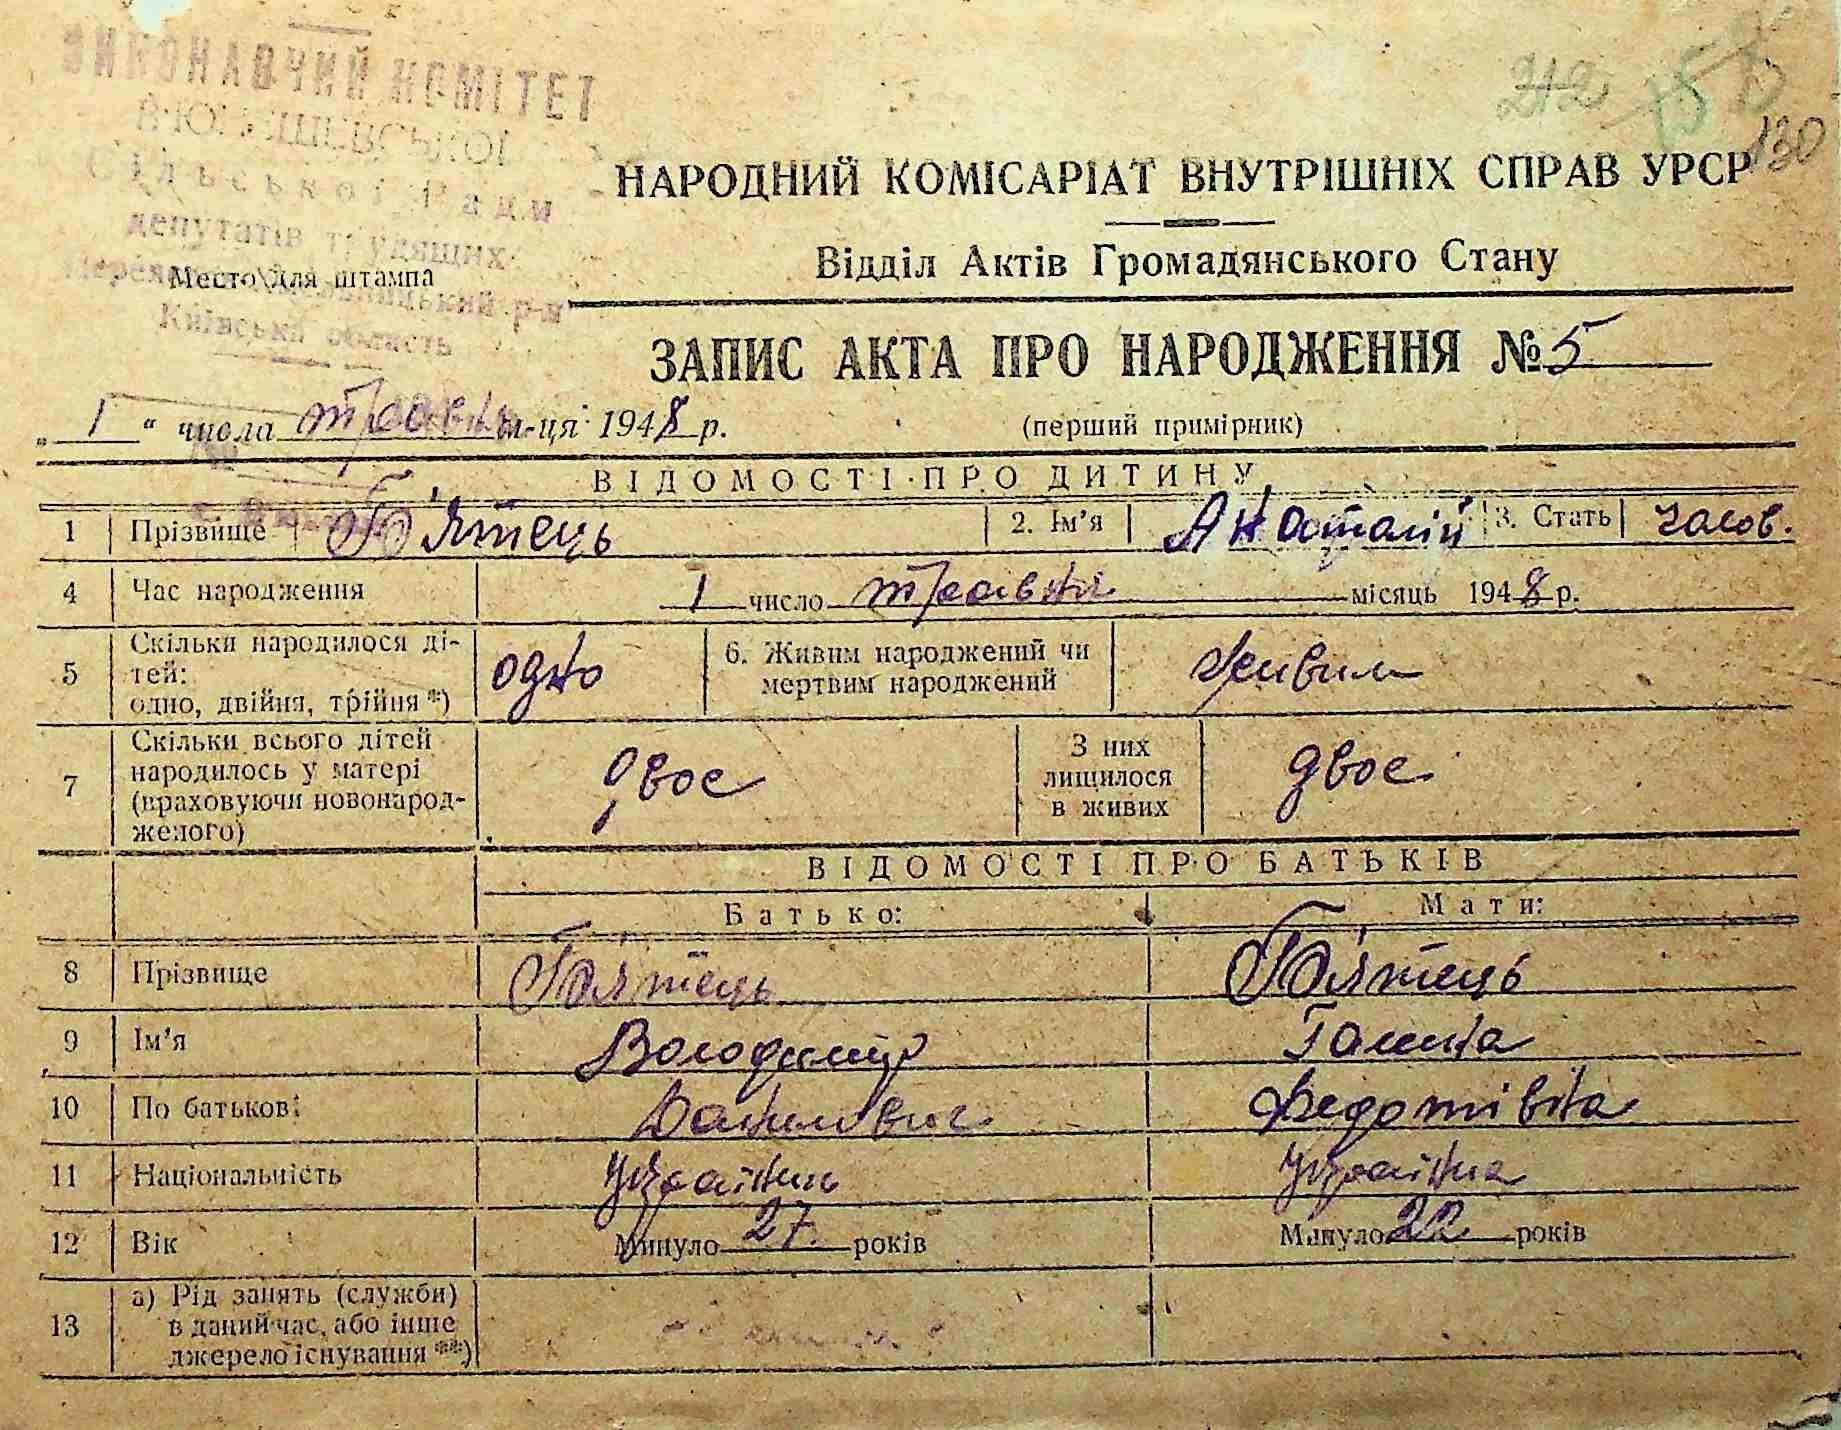 ВИКОНАВЧИЙ КОМІТЕТ
Сільської Ради
депутатів трудящих
Київська область
Место для штампа
212
130
НАРОДНИЙ КОМІСАРІАТ ВНУТРІШНІХ СПРАВ УРСР
Відділ Актів Громадянського Стану
ЗАПИС АКТА ПРО НАРОДЖЕННЯ № 5
„ 1 “ числа травня м-ця 1948 р. (перший примірник)
ВІДОМОСТІ ПРО ДИТИНУ
1 Прізвище П'ятець 2. Ім'я Анаталій 3. Стать Чолов.
4 Час народження 1 число травня місяць 1948 р.
5 Скільки народилося ді-
тей:
одно, двійня, трійня *) одно 6. Живим народжений чи
мертвим народжений живим
7 Скільки всього дітей
народилось у матері
(враховуючи новонарод-
женого) двоє З них
лищилося
в живих двоє
ВІДОМОСТІ ПРО БАТЬКІВ
Батько: Мати:
8 Прізвище П'ятець П'ятець
9 Ім'я Володимир Галина
10 По батькові Данилович Федотівна
11 Національність Українць Українка
12 Вік Минуло 27 років Минуло 22 років
13 а) Рід занять (служби)
в даний час, або інше
джерело існування **)